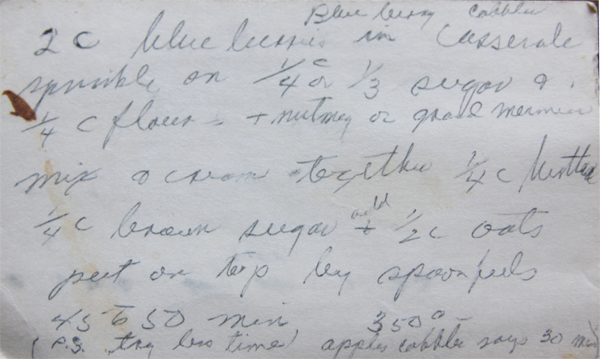 Blueberry cobbler
2 c blueberries in Casserole
sprinkle on 1/4 c or 1/3 sugar &
1/4 c flour - + nutmeg or
mix & cream together 1/4 c butter
1/4 c brown sugar add + 1/2 c oats
put on top by spoonfuls
45 to 50 min 350° -
(P.S. try less time) apple cobbler says 30 min